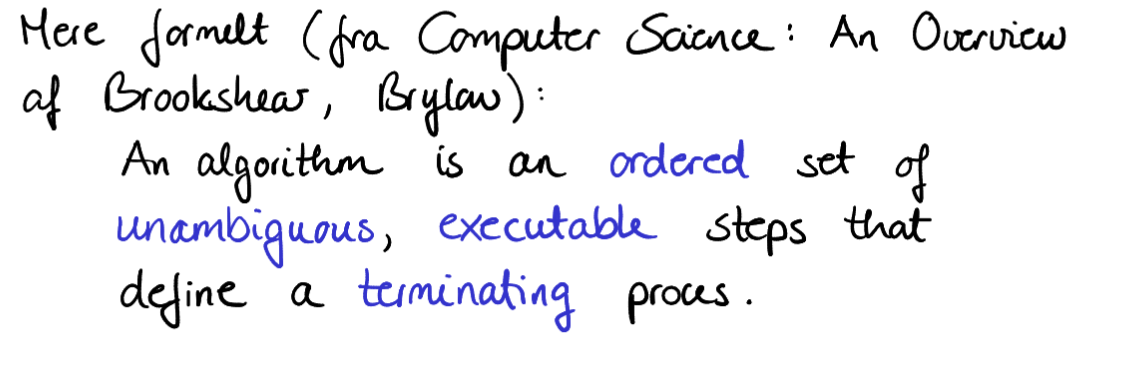 Mere formelt (fra Computer Science: An Overview
af Brookshear, Brylow):
An algorithm is an ordered set of
unambiguous, executable steps that
define a terminating proces.